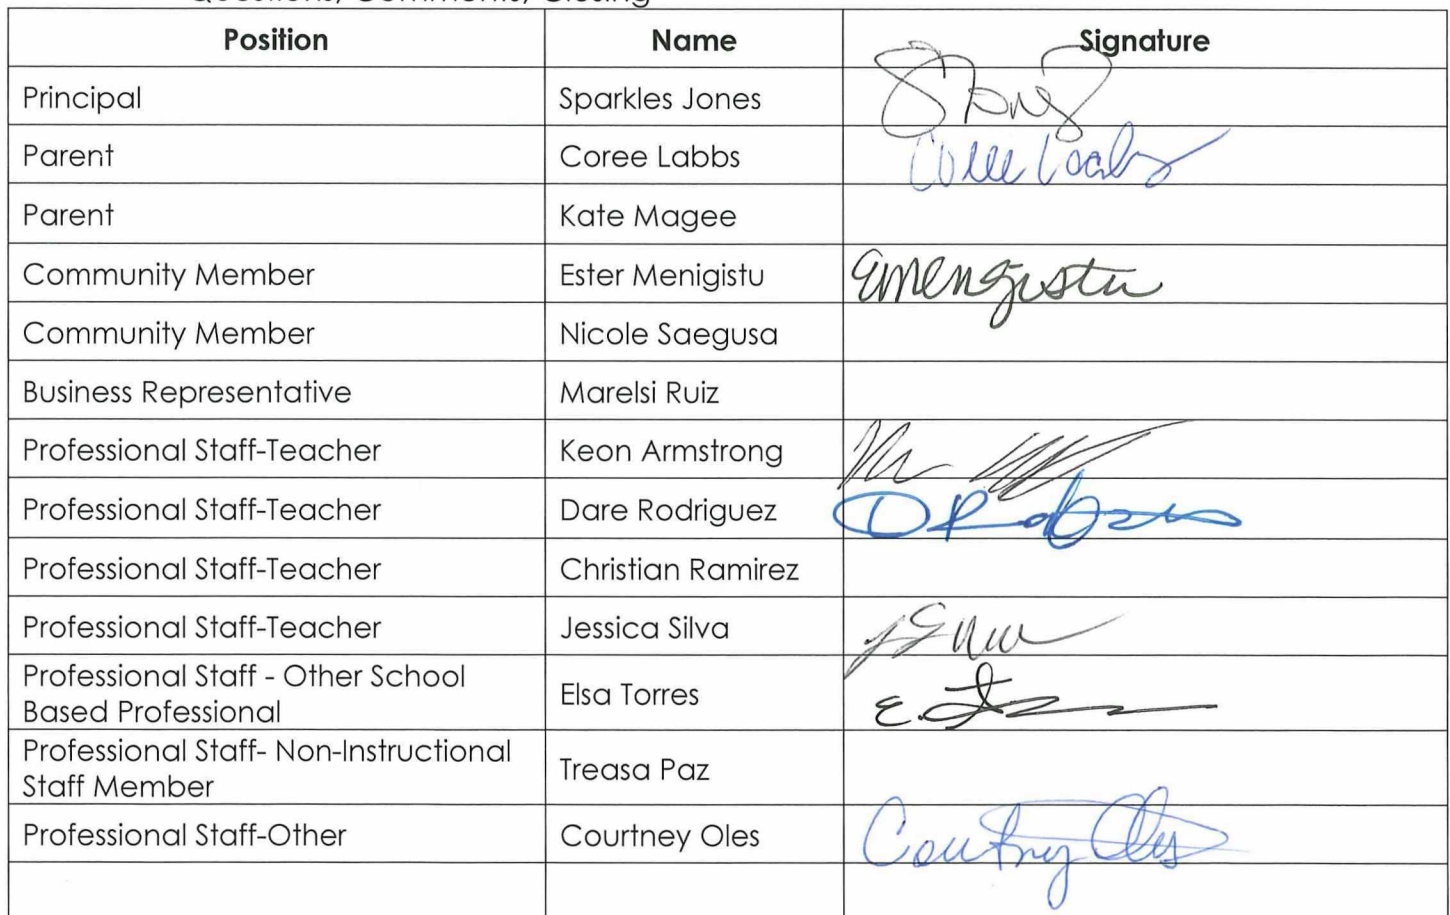 Questions, Comments, Closing
Position Name Signature
Principal Sparkles Jones SJones
Parent Coree Labbs Coree Labbs
Parent Kate Magee
Community Member Ester Menigistu EMengistu
Community Member Nicole Saegusa
Business Representative Marelsi Ruiz
Professional Staff-Teacher Keon Armstrong
Professional Staff-Teacher Dare Rodriguez
Professional Staff-Teacher Christian Ramirez
Professional Staff-Teacher Jessica Silva
Professional Staff - Other School
Based Professional Elsa Torres
Professional Staff- Non-Instructional
Staff Member Treasa Paz
Professional Staff-Other Courtney Oles Courtney Oles